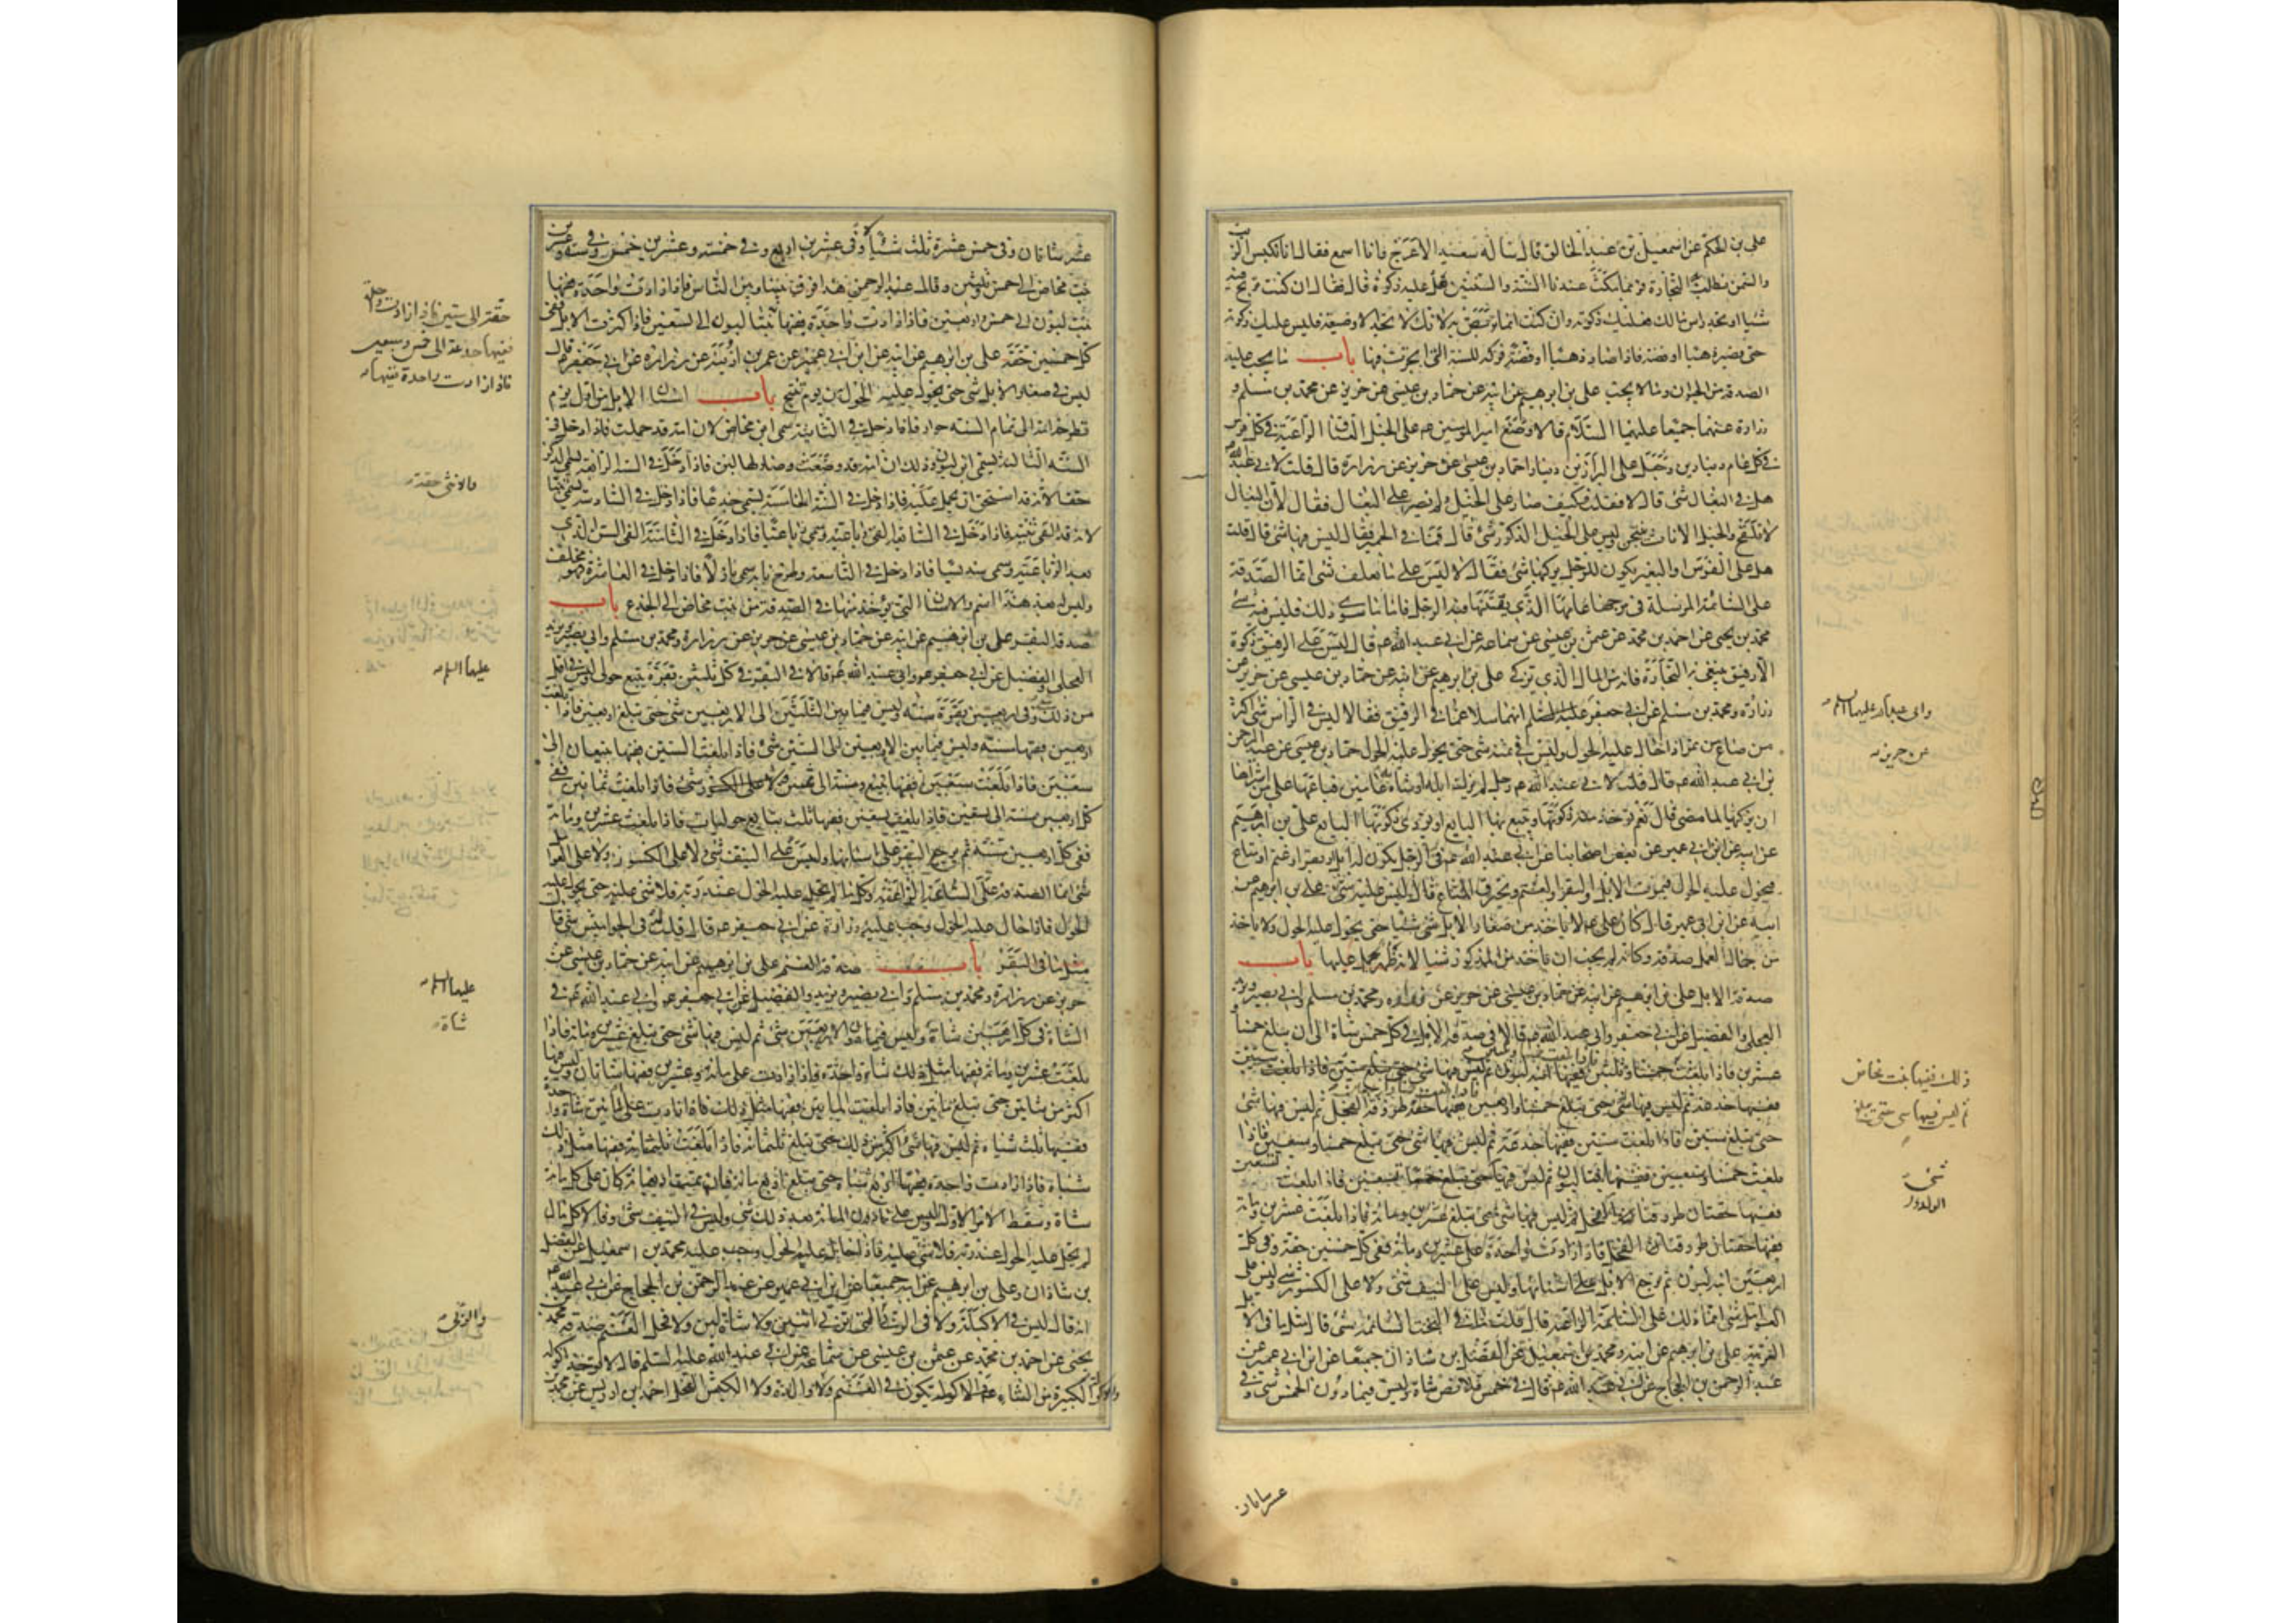 علي بن الحكم عن اسمعيل بن عبد الخالق قال سأله سعيد الاعرج وانا اسمع فقال انا نكبس الزيت
والسمن نطلب به التجارة فربما مكث عندنا السنة والسنتين هل عليه زكوة قال فقال ان كنت تربح منه
شيئا او تجد راس مالك فعليك زكوته وان كنت انما تربص به لانك لا تجد الا وضيعة فليس عليك زكوة
حتى يصير ذهبا او فضة فاذا صار ذهبا او فضة فزكه للسنة التي اتجرت فيها باب ما يجب عليه
الصدقة من الحيوان وما لا يجب علي بن ابرهيم عن ابيه عن حماد بن عيسى عن حريز عن محمد بن مسلم و
زرارة عنهما جميعا عليهما السلام قالا وضع امير المومنين ع م على الخيل العتاق الراعية في كل فرس
في كل عام دينارين وجعل على البراذين دينارا حماد بن عيسى عن حريز عن زرارة قال قلت لابي عبد الله ع م
هل في البغال شئ قال لا فقلت فكيف صار على الخيل ولم يصر على البغال فقال لان البغال
لا تلقح والخيل الاناث ينتجن وليس على الخيل الذكور شئ قال قلت فما في الحمير فقال ليس فيها شئ قال قلت
هل على الفرس او البعير يكون للرجل يركبها شئ فقال لا ليس على ما يعلف شئ انما الصدقة
على السائمة المرسلة في مرجها عامها الذي يقتنيها فيه الرجل فاما ما سوى ذلك فليس فيه شئ
محمد بن يحيى عن احمد بن محمد عن عثمن بن عيسى عن سماعة عن ابي عبد الله ع م قال ليس على الرقيق زكوة
الا رقيق يبتغى به التجارة فانه من المال الذي يزكى علي بن ابرهيم عن ابيه عن حماد بن عيسى عن حريز عن
زرارة ومحمد بن مسلم عن ابي جعفر عليه السلم انهما سئلا عما في الرقيق فقالا ليس في الراس شئ اكثر
من صاع من تمر اذا حال عليه الحول وليس في ثمنه شئ حتى يحول عليه الحول حماد بن عيسى عن عبد الرحمن
بن ابي عبد الله ع م قال قلت لابي عبد الله ع م رجل لم يزك ابله او شاته عامين فباعها على من اشتراها
ان يزكيها لما مضى قال نعم توخذ منه زكوتها ويتبع بها البايع او يودي زكوتها البايع علي بن ابرهيم
عن ابيه عن ابن ابي عمير عن بعض اصحابنا عن ابي عبد الله ع م في الرجل يكون له ابل او بقر او غنم او متاع
فيحول عليه الحول فيموت الابل والبقر والغنم ويحترق المتاع قال ليس عليه شئ علي بن ابرهيم عن
ابيه عن ابن ابي عمير قال كان علي ع م لا ياخذ من صغار الابل شيئا حتى يحول عليه الحول ولا ياخذ
من جمال العمل صدقة وكانه لم يحب ان ياخذ من الذكور شيئا لانه ظهر يحمل عليها باب
صدقة الابل علي بن ابرهيم عن ابيه عن حماد بن عيسى عن حريز عن زرارة ومحمد بن مسلم وابي بصير وبريد
العجلي والفضيل عن ابي جعفر وابي عبد الله ع م قالا في صدقة الابل في كل خمس شاة الى ان يبلغ خمسا و
حتى تبلغ ستين فاذا بلغت ستين ففيها جذعة ثم ليس فيها شئ حتى تبلغ خمسا وسبعين فاذا
بلغت خمسا وسبعين ففيها ابنتا لبون ثم ليس فيها شئ حتى تبلغ تسعين فاذا بلغت تسعين
ففيها حقتان طروقتا الفحل ثم ليس فيها شئ حتى تبلغ عشرين ومائة فاذا بلغت عشرين ومائة
ففيها حقتان طروقتان الفحل فاذا زادت واحدة على عشرين ومائة ففي كل خمسين حقة وفي كل
اربعين ابنة لبون ثم ترجع الابل على اسنانها وليس على النيف شئ ولا على الكسور شئ وليس على
العوامل شئ انما ذلك على السائمة الراعية قال قلت فما في البخت السائمة شئ قال مثل ما في الابل
العربية علي بن ابرهيم عن ابيه ومحمد بن اسمعيل عن الفضل بن شاذان جميعا عن ابن ابي عمير عن
عبد الرحمن بن الحجاج عن ابي عبد الله ع م قال في خمس قلائص شاة وليس فيما دون الخمس شئ وفي
عشر شاتان
واي عبد الله عليهما السلم
عن حريز
ذلك ففيها بنت مخاض
ثم ليس فيها شئ حتى تبلغ
شئ
عشر شاتان وفي خمس عشرة ثلث شياه وفي عشرين اربع وفي خمسة وعشرين خمس وفي ست وعشرين
بنت مخاض الى خمس وثلثين وقال عبد الرحمن هذا فرق بيننا وبين الناس فاذا زادت واحدة ففيها
بنت لبون الى خمس واربعين فاذا زادت واحدة ففيها بنتا لبون الى تسعين فاذا كثرت الابل ففي
كل خمسين حقة علي بن ابرهيم عن ابيه عن ابن ابي عمير عن عمر بن اذينة عن زرارة عن ابي جعفر ع م قال
ليس في صغار الابل شئ حتى يحول عليه الحول من يوم تنتج باب اسنان الابل من اول يوم
تطرحه امه الى تمام السنة حوار فاذا دخل في الثانية سمي ابن مخاض لان امه قد حملت فاذا دخل في
السنة الثالثة يسمى ابن لبون وذلك ان امه قد وضعت وصار لها لبن فاذا دخل في السنة الرابعة يسمى الذكر
حقا لانه قد استحق ان يحمل عليه فاذا دخل في السنة الخامسة يسمى جذعا فاذا دخل في السادسة يسمى ثنيا
لانه قد القى ثنيته فاذا دخل في السابعة القى رباعيته وسمي رباعيا فاذا دخل في الثامنة القى السن الذي
بعد الرباعية وسمي سديسا فاذا دخل في التاسعة وطرح نابه سمي بازلا فاذا دخل في العاشرة فهو مخلف
وليس له بعد هذا اسم والاسنان التي يؤخذ منها في الصدقة من بنت مخاض الى الجذع باب
صدقة البقر علي بن ابرهيم عن ابيه عن حماد بن عيسى عن حريز عن زرارة ومحمد بن مسلم وابي بصير وبريد
العجلي والفضيل عن ابي جعفر وابي عبد الله ع م قالا في البقر في كل ثلثين بقرة تبيع حولي وليس في اقل
من ذلك شئ وفي اربعين بقرة مسنة وليس فيما بين الثلثين الى الاربعين شئ حتى تبلغ اربعين فاذا بلغت
اربعين ففيها مسنة وليس فيما بين الاربعين الى الستين شئ فاذا بلغت الستين ففيها تبيعان الى
سبعين فاذا بلغت سبعين ففيها تبيع ومسنة الى ثمانين فاذا بلغت ثمانين ففي
كل اربعين مسنة الى تسعين فاذا بلغت تسعين ففيها ثلث تبايع حوليات فاذا بلغت عشرين ومائة
ففي كل اربعين مسنة ثم ترجع البقر على اسنانها وليس على النيف شئ ولا على الكسور ولا على العوامل
شئ انما الصدقة على السائمة الراعية وكلما لم يحل عليه الحول عند ربه فلا شئ عليه حتى يحول عليه
الحول فاذا حال عليه الحول وجب عليه زرارة عن ابي جعفر ع م قال قلت له في الجواميس شئ قال
مثل ما في البقر باب صدقة الغنم علي بن ابرهيم عن ابيه عن حماد بن عيسى عن
حريز عن زرارة ومحمد بن مسلم وابي بصير وبريد والفضيل عن ابي جعفر وابي عبد الله ع م في
الشاة في كل اربعين شاة وليس فيما دون الاربعين شئ ثم ليس فيها شئ حتى تبلغ عشرين ومائة فاذا
بلغت عشرين ومائة ففيها مثل ذلك شاة واحدة فاذا زادت على مائة وعشرين ففيها شاتان وليس فيها
اكثر من شاتين حتى تبلغ مائتين فاذا بلغت المائتين ففيها مثل ذلك فاذا زادت على المائتين شاة واحدة
ففيها ثلث شياه ثم ليس فيها شئ اكثر من ذلك حتى تبلغ ثلثمائة فاذا بلغت ثلثمائة ففيها مثل ذلك
شياه فاذا زادت واحدة ففيها اربع شياه حتى تبلغ اربع مائة فان تمت اربعمائة كان على كل مائة
شاة وسقط الامر الاول وليس على ما دون المائة بعد ذلك شئ وليس في النيف شئ وقالا كل مال
لم يحل عليه الحول عند ربه فلا شئ عليه فاذا حال عليه الحول وجب عليه محمد بن اسمعيل عن الفضل
بن شاذان وعلي بن ابرهيم عن ابيه جميعا عن ابن ابي عمير عن عبد الرحمن بن الحجاج عن ابي عبد الله ع م
انه قال ليس في الاكيلة ولا في الربى التي تربي اثنين ولا شاة لبن ولا فحل الغنم صدقة محمد بن
يحيى عن احمد بن محمد عن عثمن بن عيسى عن سماعة عن ابي عبد الله عليه السلم قال لا توخذ اكولة
والاكولة الكبيرة من الشاة تكون في الغنم ولا والدة ولا الكبش الفحل احمد بن ادريس عن محمد بن
حقة الى ستين فاذا زادت واحدة
ففيها جذعة الى خمس وسبعين
فاذا زادت واحدة ففيها
والانثى حقة
عليهما السلم
عليهما السلم
شاة
والربى